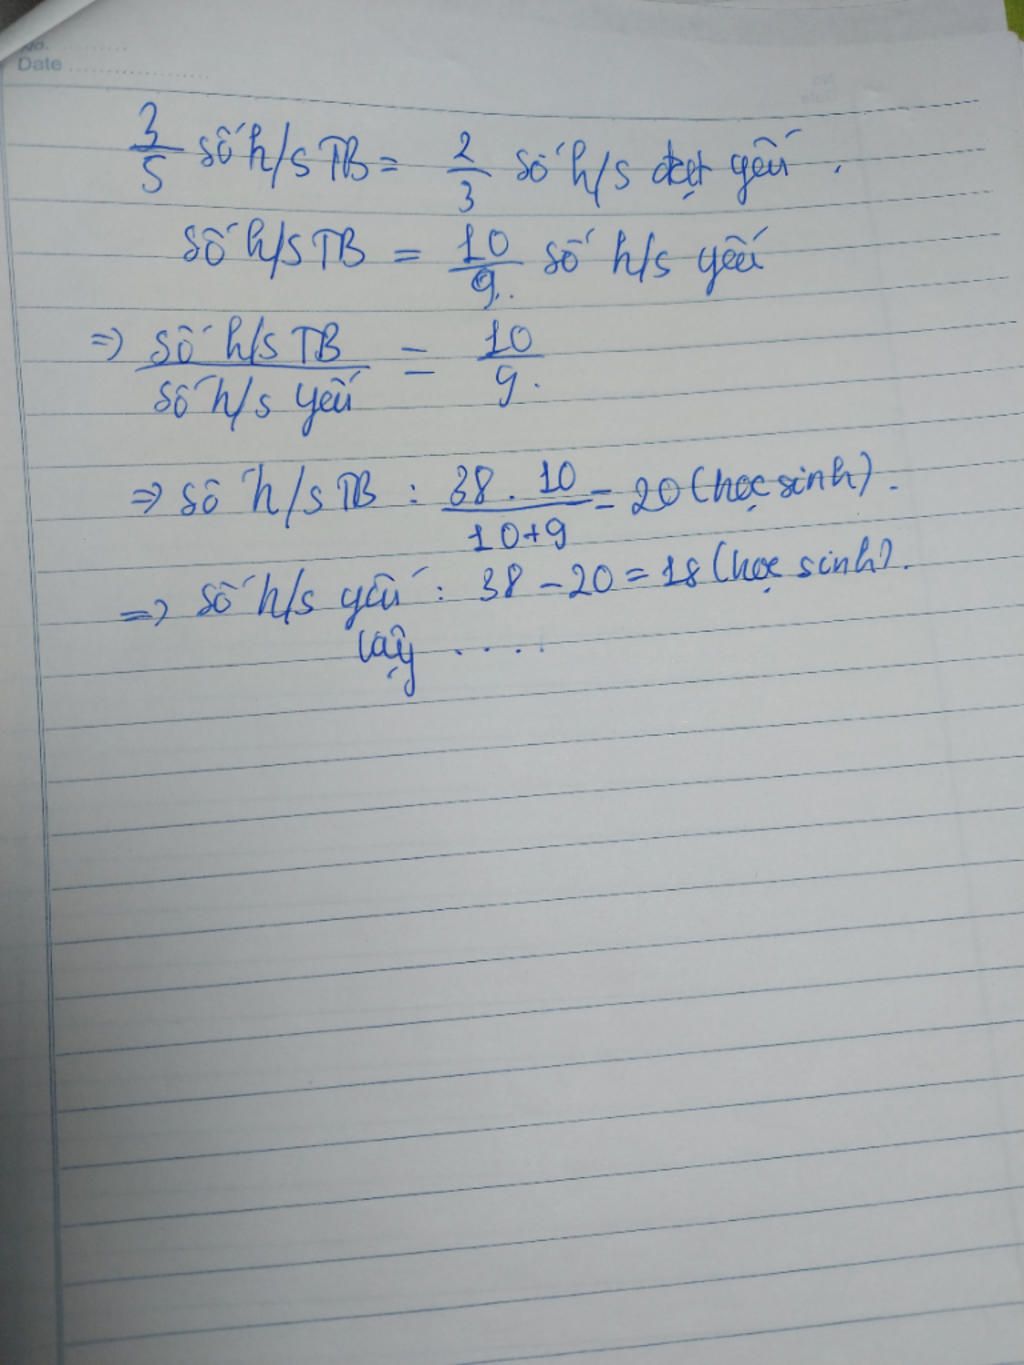 No. ............
Date ....................
3/5 số h/s TB = 2/3 số h/s đạt yếu.
số h/s TB = 10/9. số h/s yếu
=> số h/s TB / số h/s yếu = 10/9.
=> số h/s TB : 38 . 10 / 10+9 = 20 (học sinh).
=> số h/s yếu : 38 - 20 = 18 (học sinh).
Vậy ....